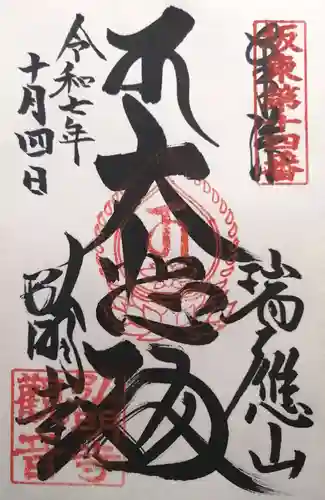 坂東第十四番
奉拝
瑞應山
大悲殿
弘明寺
令和七年
十月四日
弘明寺
觀音